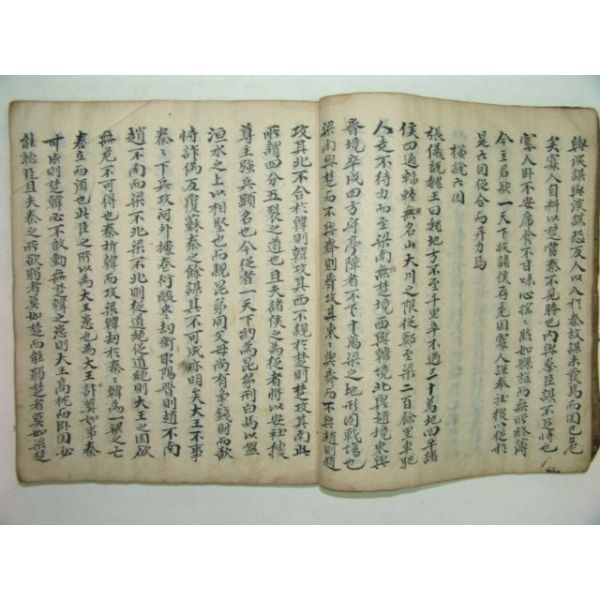 與深謀與深謀恐反人以入於秦故謀未發而國已危
矣寡人自料以楚當秦不見勝也內與羣臣謀不足恃也
寡人臥不安席食不甘味心搖搖然如縣旌而無所終薄
今主君欲一天下收諸侯存危國寡人謹奉社稷以從於
是六國從合而并力焉
橫說六國
張儀說魏王曰魏地方不至千里卒不過三十萬地四平諸
侯四通輻輳無名山大川之限從鄭至梁二百餘里車馳
人走不待力而至梁南與楚境西與韓境北與趙境東與
齊境卒戍四方守亭障者不下十萬梁之地形固戰場也
梁南與楚而不與齊則齊攻其東東與齊而不與趙則趙
攻其北不合於韓則韓攻其西不親於楚則楚攻其南此
所謂四分五裂之道也且夫諸侯之為從者將以安社稷
尊主強兵顯名也今從者一天下約為昆弟刑白馬以盟
洹水之上以相堅也而親昆弟同父母尚有爭錢財而欲
恃詐偽反覆蘇秦之餘謀其不可成亦明矣大王不事
秦秦下兵攻河外據卷衍酸棗劫衛取陽晉則趙不南
趙不南而梁不北梁不北則從道絕從道絕則大王之國欲
無危不可得也秦折韓而攻梁韓劫於秦秦韓為一梁之亡
可立而須也此臣之所以為大王患也為大王計莫如事秦
事秦則楚韓必不敢動無楚韓之患則大王高枕而臥國必
無憂矣且夫秦之所欲弱者莫如楚而能弱楚者莫如梁楚